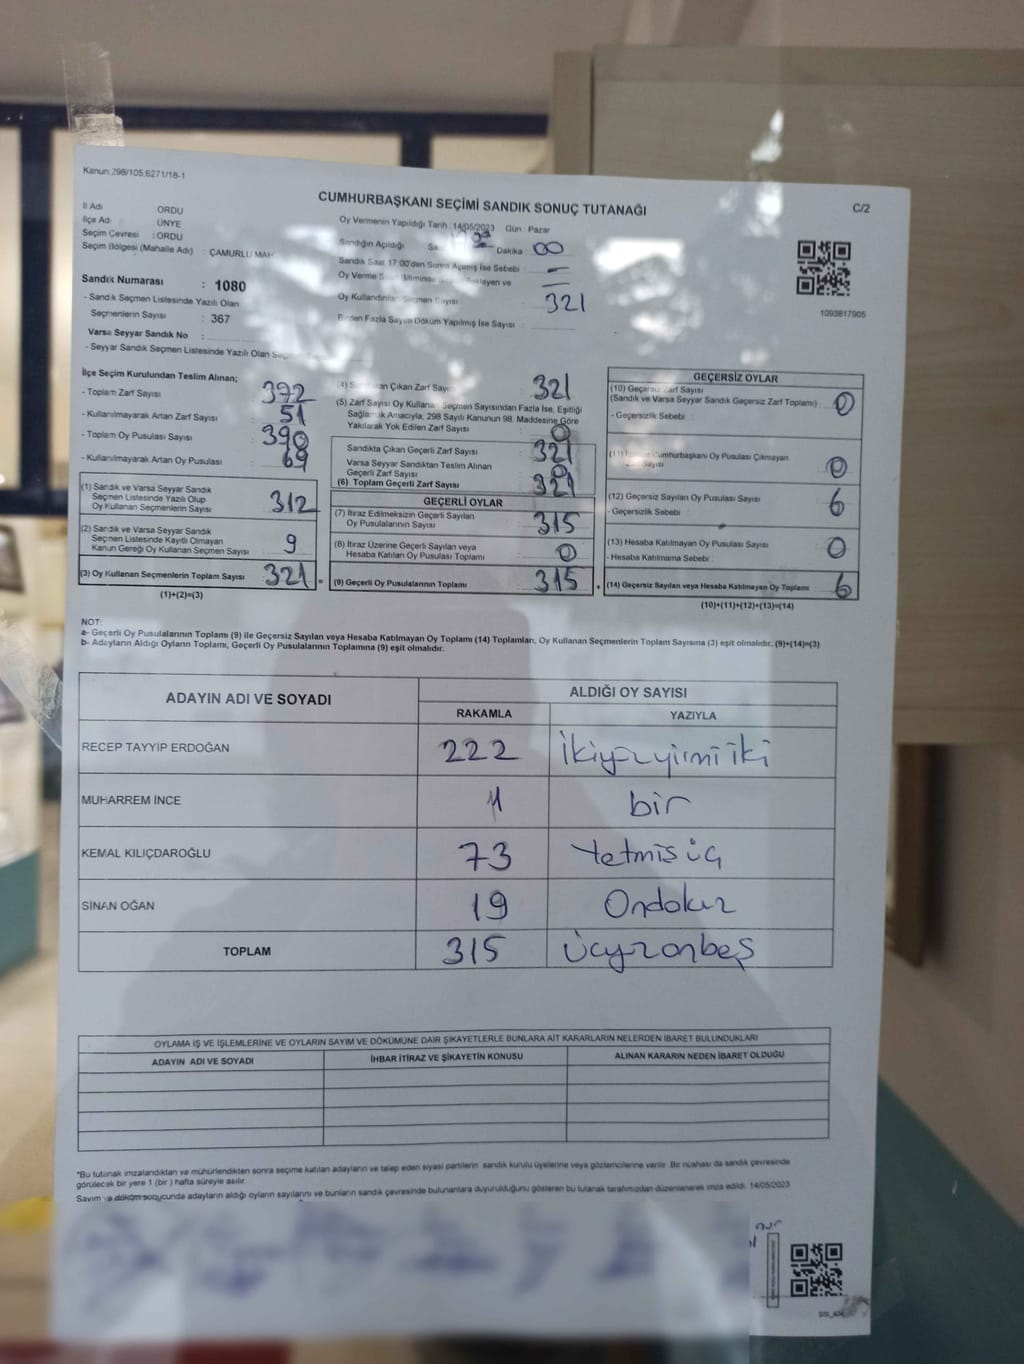 Kanun.298/105.6271/18-1
CUMHURBAŞKANI SEÇİMİ SANDIK SONUÇ TUTANAĞI
C/2
İl Adı ORDU
İlçe Adı ÜNYE
Seçim Çevresi : ORDU
Seçim Bölgesi (Mahalle Adı) : ÇAMURLU MAH
Oy Vermenin Yapıldığı Tarih :14/05/2023 Gün Pazar
Sandığın Açıldığı Dakika 00
Sandık Saat 17:00'den Sonra Açılmış İse Sebebi :
Oy Verme
Oy Kullandırılan Seçmen Sayısı 321
Birden Fazla Sayım Döküm Yapılmış İse Sayısı :
1093817905
Sandık Numarası : 1080
- Sandık Seçmen Listesinde Yazılı Olan
Seçmenlerin Sayısı : 367
Varsa Seyyar Sandık No :
- Seyyar Sandık Seçmen Listesinde Yazılı Olan
İlçe Seçim Kurulundan Teslim Alınan;
- Toplam Zarf Sayısı : 372
- Kullanılmayarak Artan Zarf Sayısı : 51
- Toplam Oy Pusulası Sayısı : 390
- Kullanılmayarak Artan Oy Pusulası : 69
(1) Sandık ve Varsa Seyyar Sandık
Seçmen Listesinde Yazılı Olup
Oy Kullanan Seçmenlerin Sayısı 312
(2) Sandık ve Varsa Seyyar Sandık
Seçmen Listesinde Kayıtlı Olmayan
Kanun Gereği Oy Kullanan Seçmen Sayısı 9
(3) Oy Kullanan Seçmenlerin Toplam Sayısı 321 =
(1)+(2)=(3)
(4) Sandıktan Çıkan Zarf Sayısı 321
(5) Zarf Sayısı Oy Kullanan Seçmen Sayısından Fazla İse, Eşitliği
Sağlamak Amacıyla, 298 Sayılı Kanunun 98. Maddesine Göre
Yakılarak Yok Edilen Zarf Sayısı 0
Sandıkta Çıkan Geçerli Zarf Sayısı 321
Varsa Seyyar Sandıktan Teslim Alınan
Geçerli Zarf Sayısı 0
(6) Toplam Geçerli Zarf Sayısı 321
GEÇERLİ OYLAR
(7) İtiraz Edilmeksizin Geçerli Sayılan
Oy Pusulalarının Sayısı 315
(8) İtiraz Üzerine Geçerli Sayılan veya
Hesaba Katılan Oy Pusulası Toplamı 0
(9) Geçerli Oy Pusulalarının Toplamı 315 +
GEÇERSİZ OYLAR
(10) Geçersiz Zarf Sayısı
(Sandık ve Varsa Seyyar Sandık Geçersiz Zarf Toplamı) 0
- Geçersizlik Sebebi :
(11) Cumhurbaşkanı Oy Pusulası Çıkmayan
0
(12) Geçersiz Sayılan Oy Pusulası Sayısı 6
- Geçersizlik Sebebi :
(13) Hesaba Katılmayan Oy Pusulası Sayısı 0
- Hesaba Katılmama Sebebi :
(14) Geçersiz Sayılan veya Hesaba Katılmayan Oy Toplamı 6
(10)+(11)+(12)+(13)=(14)
NOT:
a- Geçerli Oy Pusulalarının Toplamı (9) ile Geçersiz Sayılan veya Hesaba Katılmayan Oy Toplamı (14) Toplamları, Oy Kullanan Seçmenlerin Toplam Sayısına (3) eşit olmalıdır. (9)+(14)=(3)
b- Adayların Aldığı Oyların Toplamı, Geçerli Oy Pusulalarının Toplamına (9) eşit olmalıdır.
ADAYIN ADI VE SOYADI
ALDIĞI OY SAYISI
RAKAMLA YAZIYLA
RECEP TAYYİP ERDOĞAN 222 İkiyüzyirmiiki
MUHARREM İNCE 1 bir
KEMAL KILIÇDAROĞLU 73 Yetmişüç
SİNAN OĞAN 19 Ondokuz
TOPLAM 315 Üçyüzonbeş
OYLAMA İŞ VE İŞLEMLERİNE VE OYLARIN SAYIM VE DÖKÜMÜNE DAİR ŞİKAYETLERLE BUNLARA AİT KARARLARIN NELERDEN İBARET BULUNDUKLARI
ADAYIN ADI VE SOYADI İHBAR İTİRAZ VE ŞİKAYETİN KONUSU ALINAN KARARIN NEDEN İBARET OLDUĞU
*Bu tutanak imzalandıktan ve mühürlendikten sonra seçime katılan adayların ve talep eden siyasi partilerin sandık kurulu üyelerine veya gözlemcilerine verilir. Bir nüshası da sandık çevresinde
görülecek bir yere 1 (bir) hafta süreyle asılır.
Sayım ve döküm sonucunda adayların aldığı oyların sayılarını ve bunların sandık çevresinde bulunanlara duyurulduğunu gösteren bu tutanak tarafımızdan düzenlenerek imza edildi. 14/05/2023